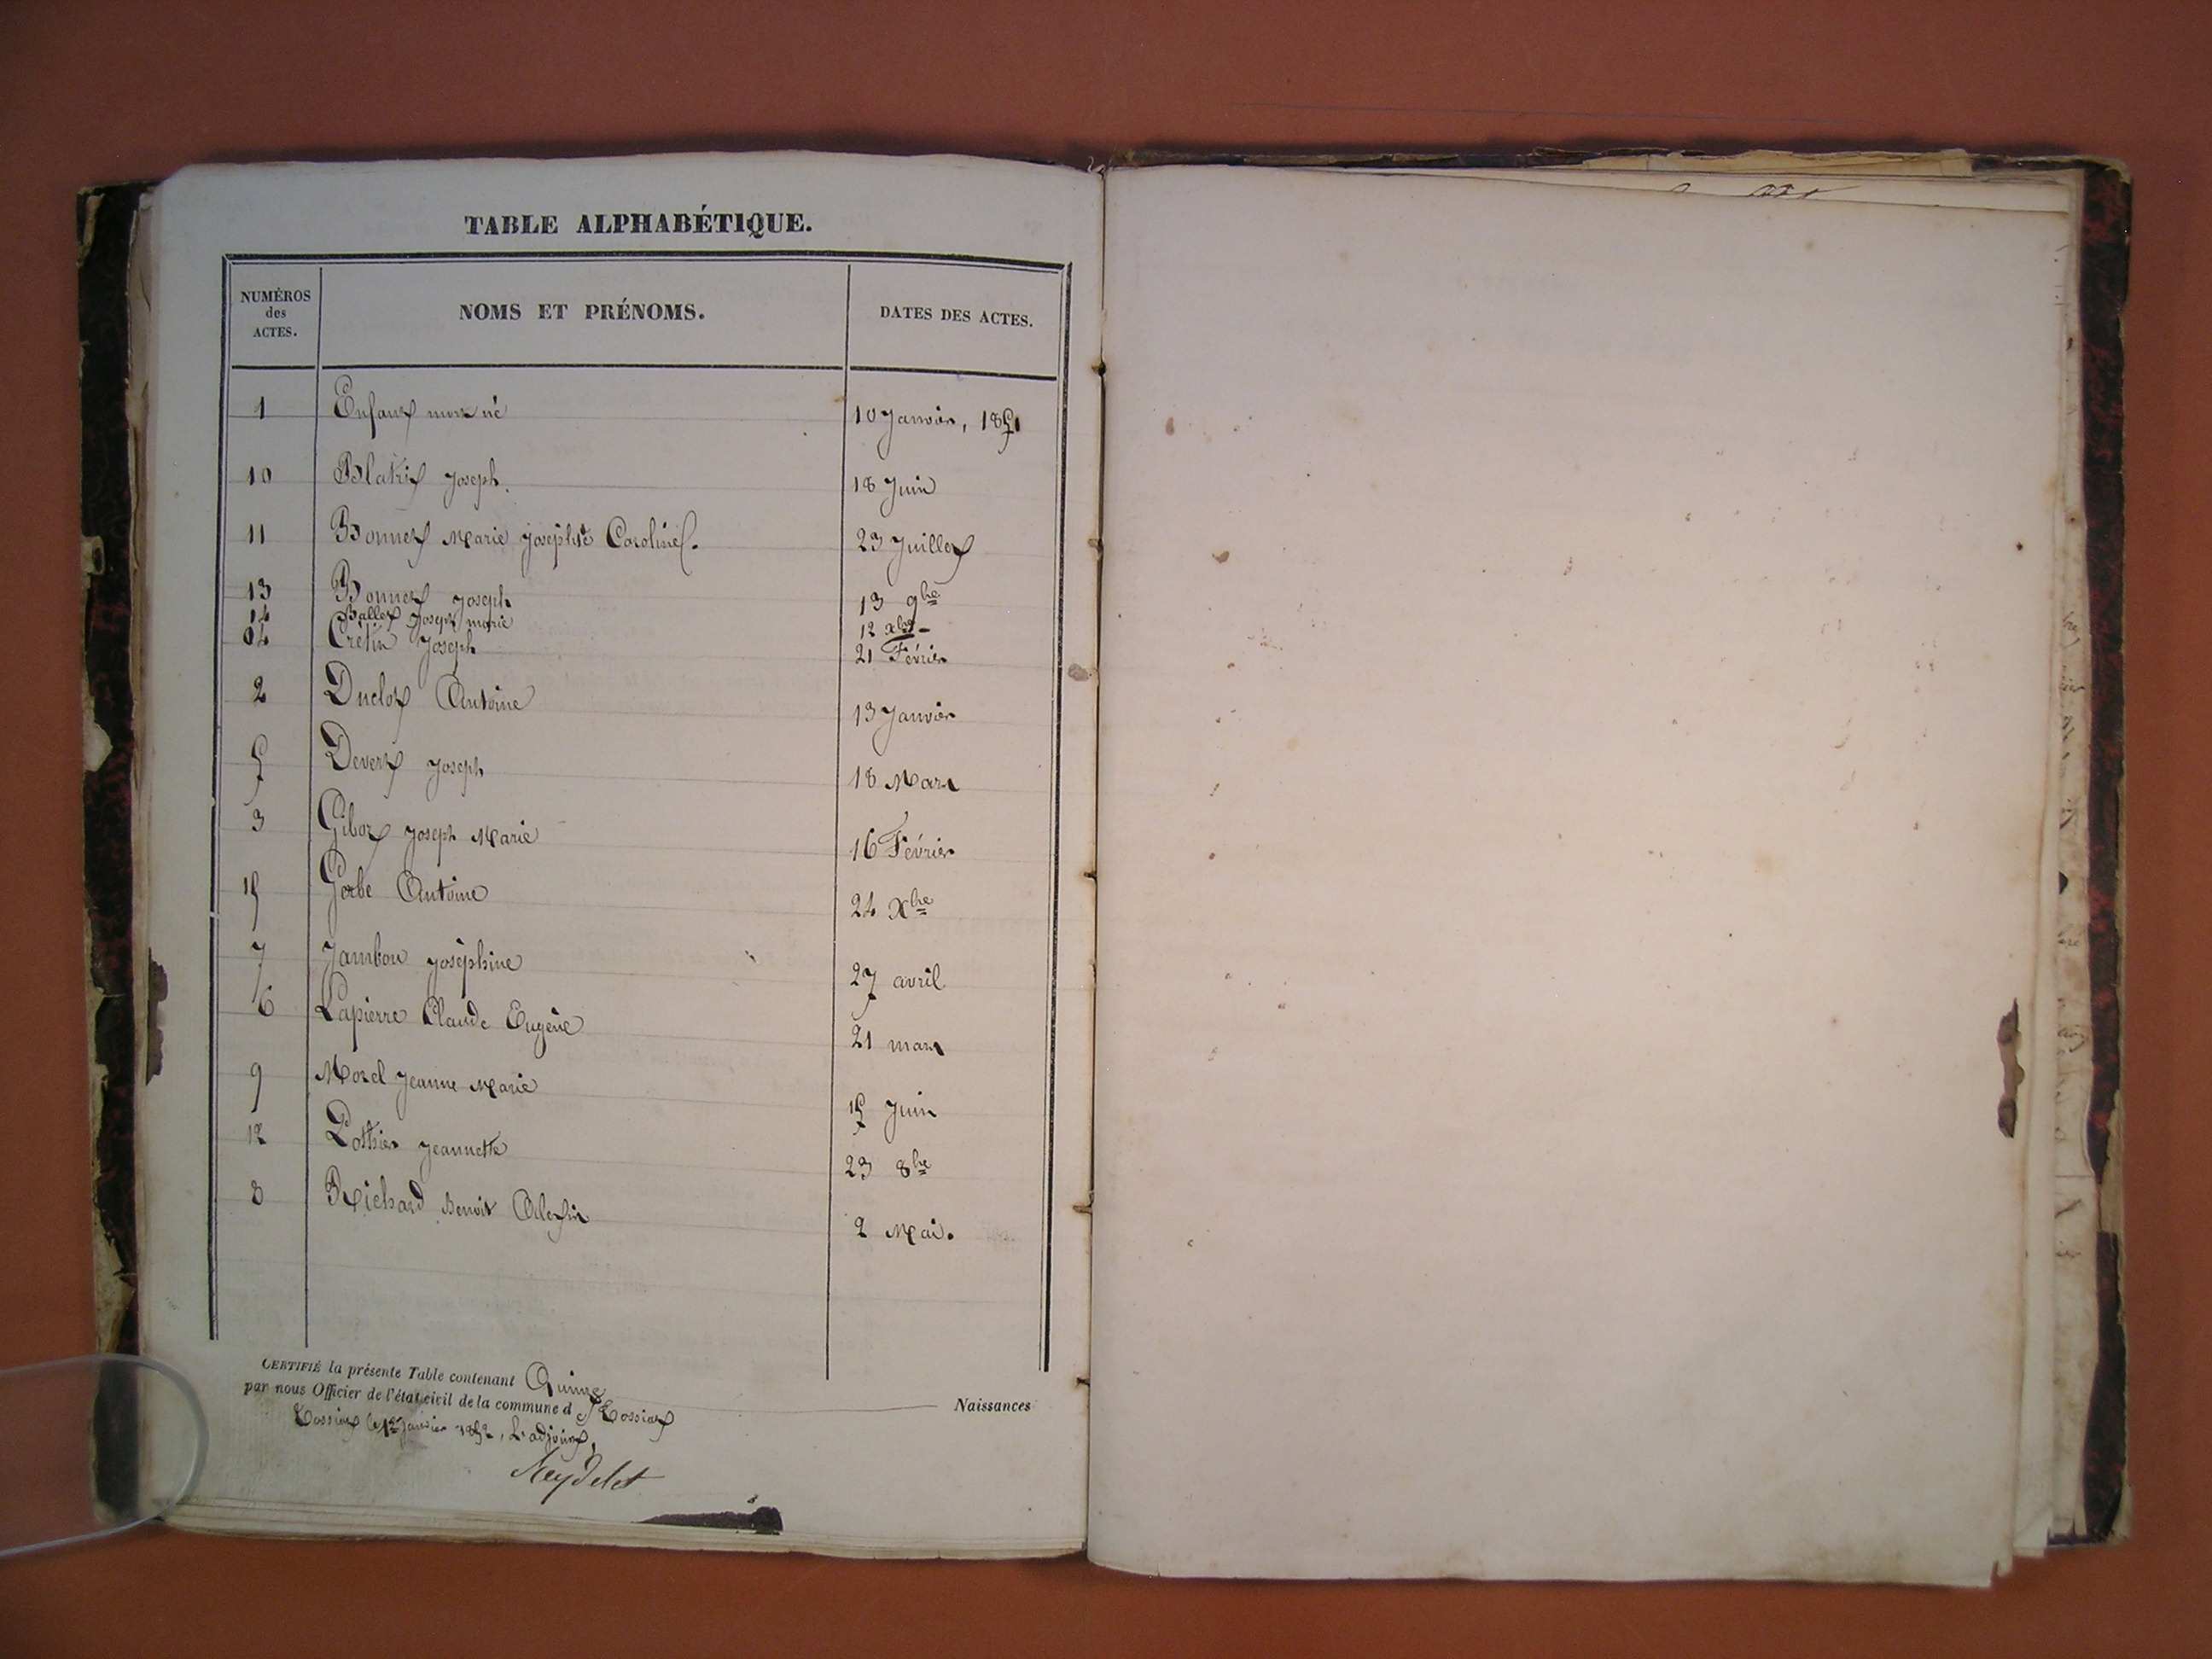 TABLE ALPHABÉTIQUE.
NUMÉROS des ACTES. NOMS ET PRÉNOMS. DATES DES ACTES.
1 Enfant mort né 10 Janvier, 1851
10 Joseph. 18 Juin
11 Bonnet Marie Josephte Caroline. 23 Juillet
13 Bonnet Joseph 13 9bre
14 Ballet Joseph marie 12 xbre
04 Crétin Joseph 21 Février
2 Duclot Antoine 13 Janvier
5 Devert Joseph 18 Mars
3 Gibot Joseph Marie 16 Février
15 Gorbe Antoine 24 Xbre
7 Jambon Joséphine 27 avril
6 Lapierre Claude Eugène 21 mars
9 Morel Jeanne Marie 15 Juin
12 Pothier Jeannette 23 8bre
8 Richard Benoit 2 Mai.
CERTIFIÉ la présente Table contenant Quinze
Naissances
par nous Officier de l'état civil de la commune d
le 1er Janvier 1852, L'adjoint,